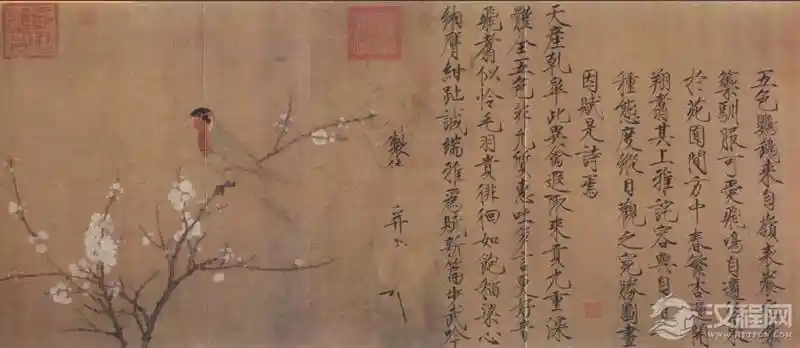 五色鸚鵡來自嶺表養
籞馴服可愛飛鳴自適
於苑囿間方中春繁杏遍
翔翥其上雅詫容與自
種態度縱目觀之宛勝圖畫
因賦是詩焉
天產乾皋此異禽遐陬來貢九重深
體全五色非凡質惠吐多言更好音
飛翥似憐毛羽貴徘徊如飽稻粱心
緗膺紺趾誠端雅為賦新篇步武吟
製
汉程网